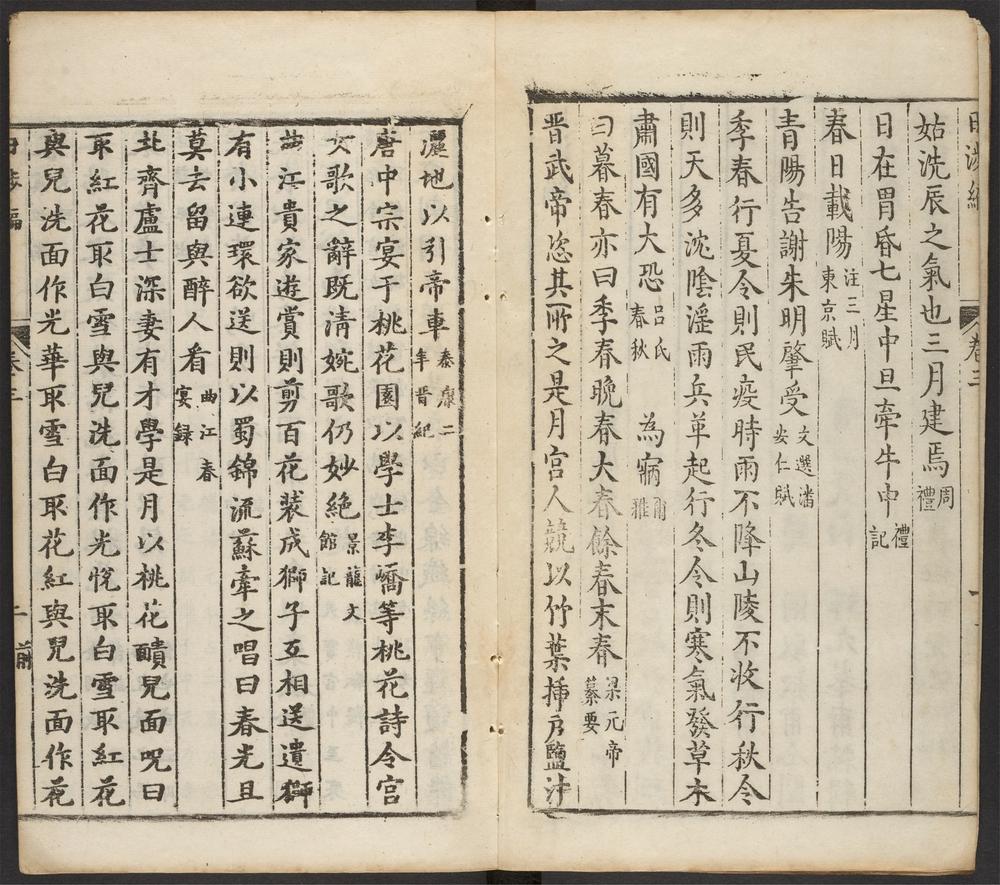 日涉編 卷三 一
姑洗辰之氣也三月建焉周禮
日在胃昏七星中旦牽牛中禮記
春日載陽注三月東京賦
青陽告謝朱明肇受文選潘安仁賦
季春行夏令則民疫時雨不降山陵不收行秋令
則天多沈陰滛雨兵革起行冬令則寒氣發草木
肅國有大恐呂氏春秋 為寎爾雅
曰暮春亦曰季春晚春大春餘春末春梁元帝纂要
晋武帝恣其所之是月宮人競以竹葉揷戶鹽汁
灑地以引帝車泰康二年晋紀
唐中宗宴于桃花園以學士李嶠等桃花詩令宮
女歌之辭既清婉歌仍妙絶景龍文館記
曲江貴家遊賞則剪百花裝成獅子互相送遺獅
有小連環欲送則以蜀錦流蘇牽之唱曰春光且
莫去留與醉人看曲江春宴録
北齊盧士深妻有才學是月以桃花靧兒面呪曰
取紅花取白雪與兒洗面作光悅取白雪取紅花
與兒洗面作光華取雪白取花紅與兒洗面作花
日涉編 卷三 二 前